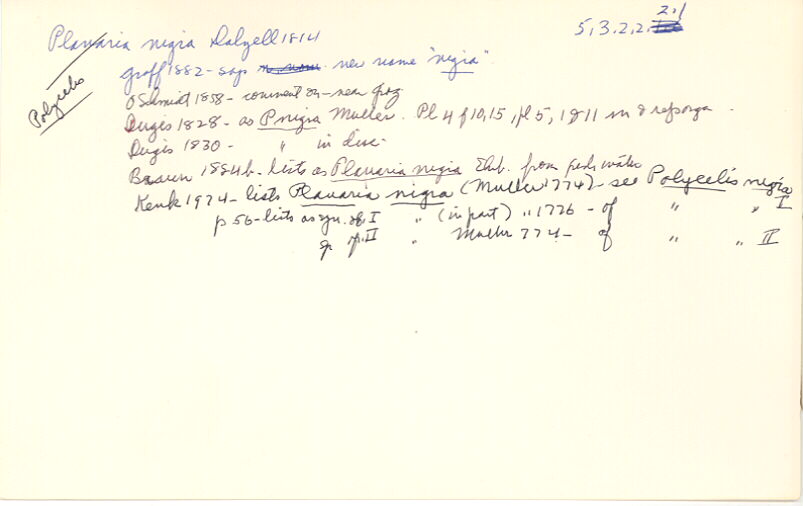 2.1
5,3.2,2.
Planaria nigra Dalyell 1814
Polycelis
Graff 1882 - says new name "nigra".
OSchmidt 1858 - comment on - near Graz
Dugès 1828 - as P nigra Muller. Pl 4 f 10,15, pl 5, 1 & 11 m & reporga.
Dugès 1830 - " in disc.
Braun 1884b - lists as Planaria nigra Ehb. from fresh water
Kenk 1974 - lists Planaria nigra (Muller 1774) - see Polycelis nigra I
p 56 - lists as syn. of I " (in part) " 1776 - of " " I
II " Muller 774 - of " " II